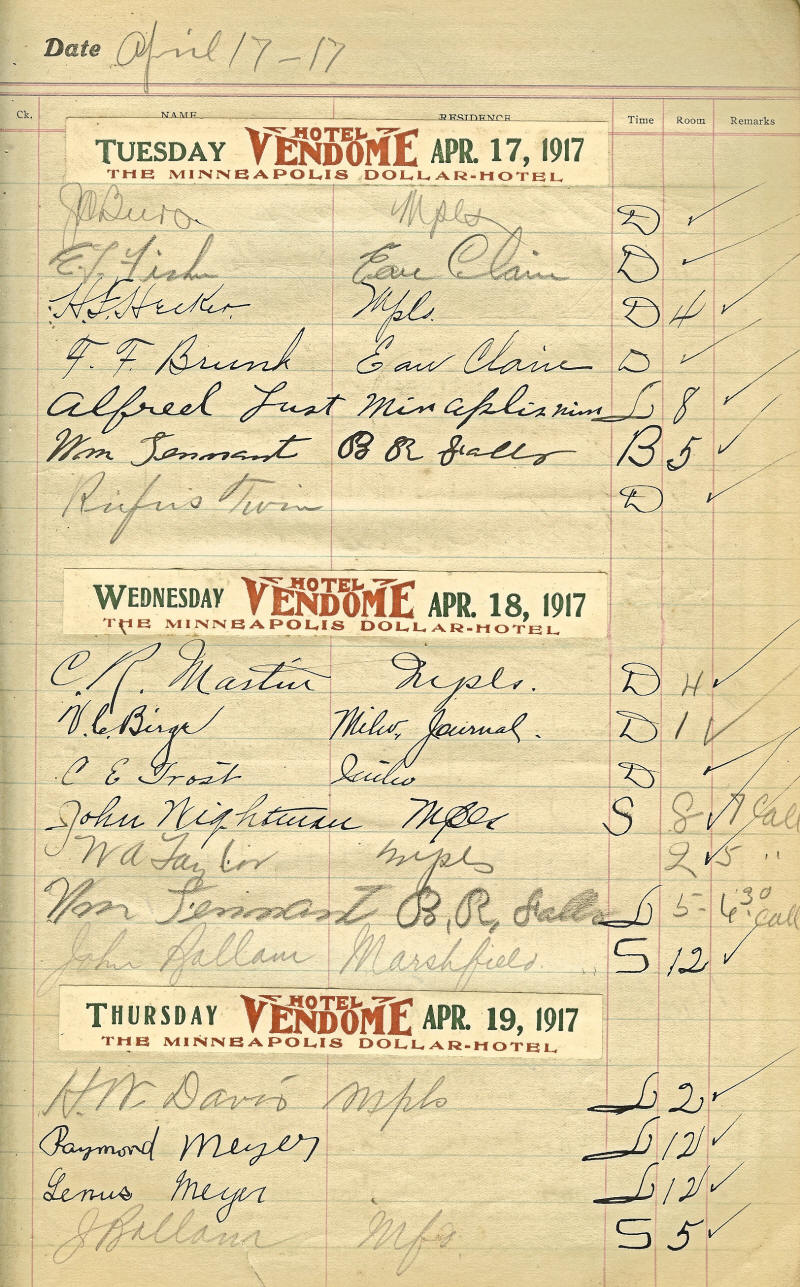 Date April 17-17
Ck. NAME RESIDENCE Time Room Remarks
TUESDAY HOTEL VENDOME APR. 17, 1917
THE MINNEAPOLIS DOLLAR-HOTEL
Mpls D ✓
E Fish Eau Clair D ✓
H.F. Hecker Mpls. D 4 ✓
F. F. Brunk Eau Claire D ✓
Alfred Lust L 8 ✓
Wm Tennant B R Falls B 5 ✓
Rufus Twin D ✓
WEDNESDAY HOTEL VENDOME APR. 18, 1917
THE MINNEAPOLIS DOLLAR-HOTEL
C. R. Martin Mpls. D 4 ✓
V.C. Birge Milw. Journal. D 1 ✓
C E Frost D ✓
John Wightman Mpls S 8 ✓ 7 Call
W A Taylor Mpls 2 ✓ 5 "
Wm Tennant B, R, Falls L 5- 6 30 Call
John Ballam Marshfield. " S 12 ✓
THURSDAY HOTEL VENDOME APR. 19, 1917
THE MINNEAPOLIS DOLLAR-HOTEL
H. W. Davis Mpls L 2 ✓
Raymond Meyer L 12 ✓
Lenus Meyer L 12 ✓
J Ballam S 5 ✓